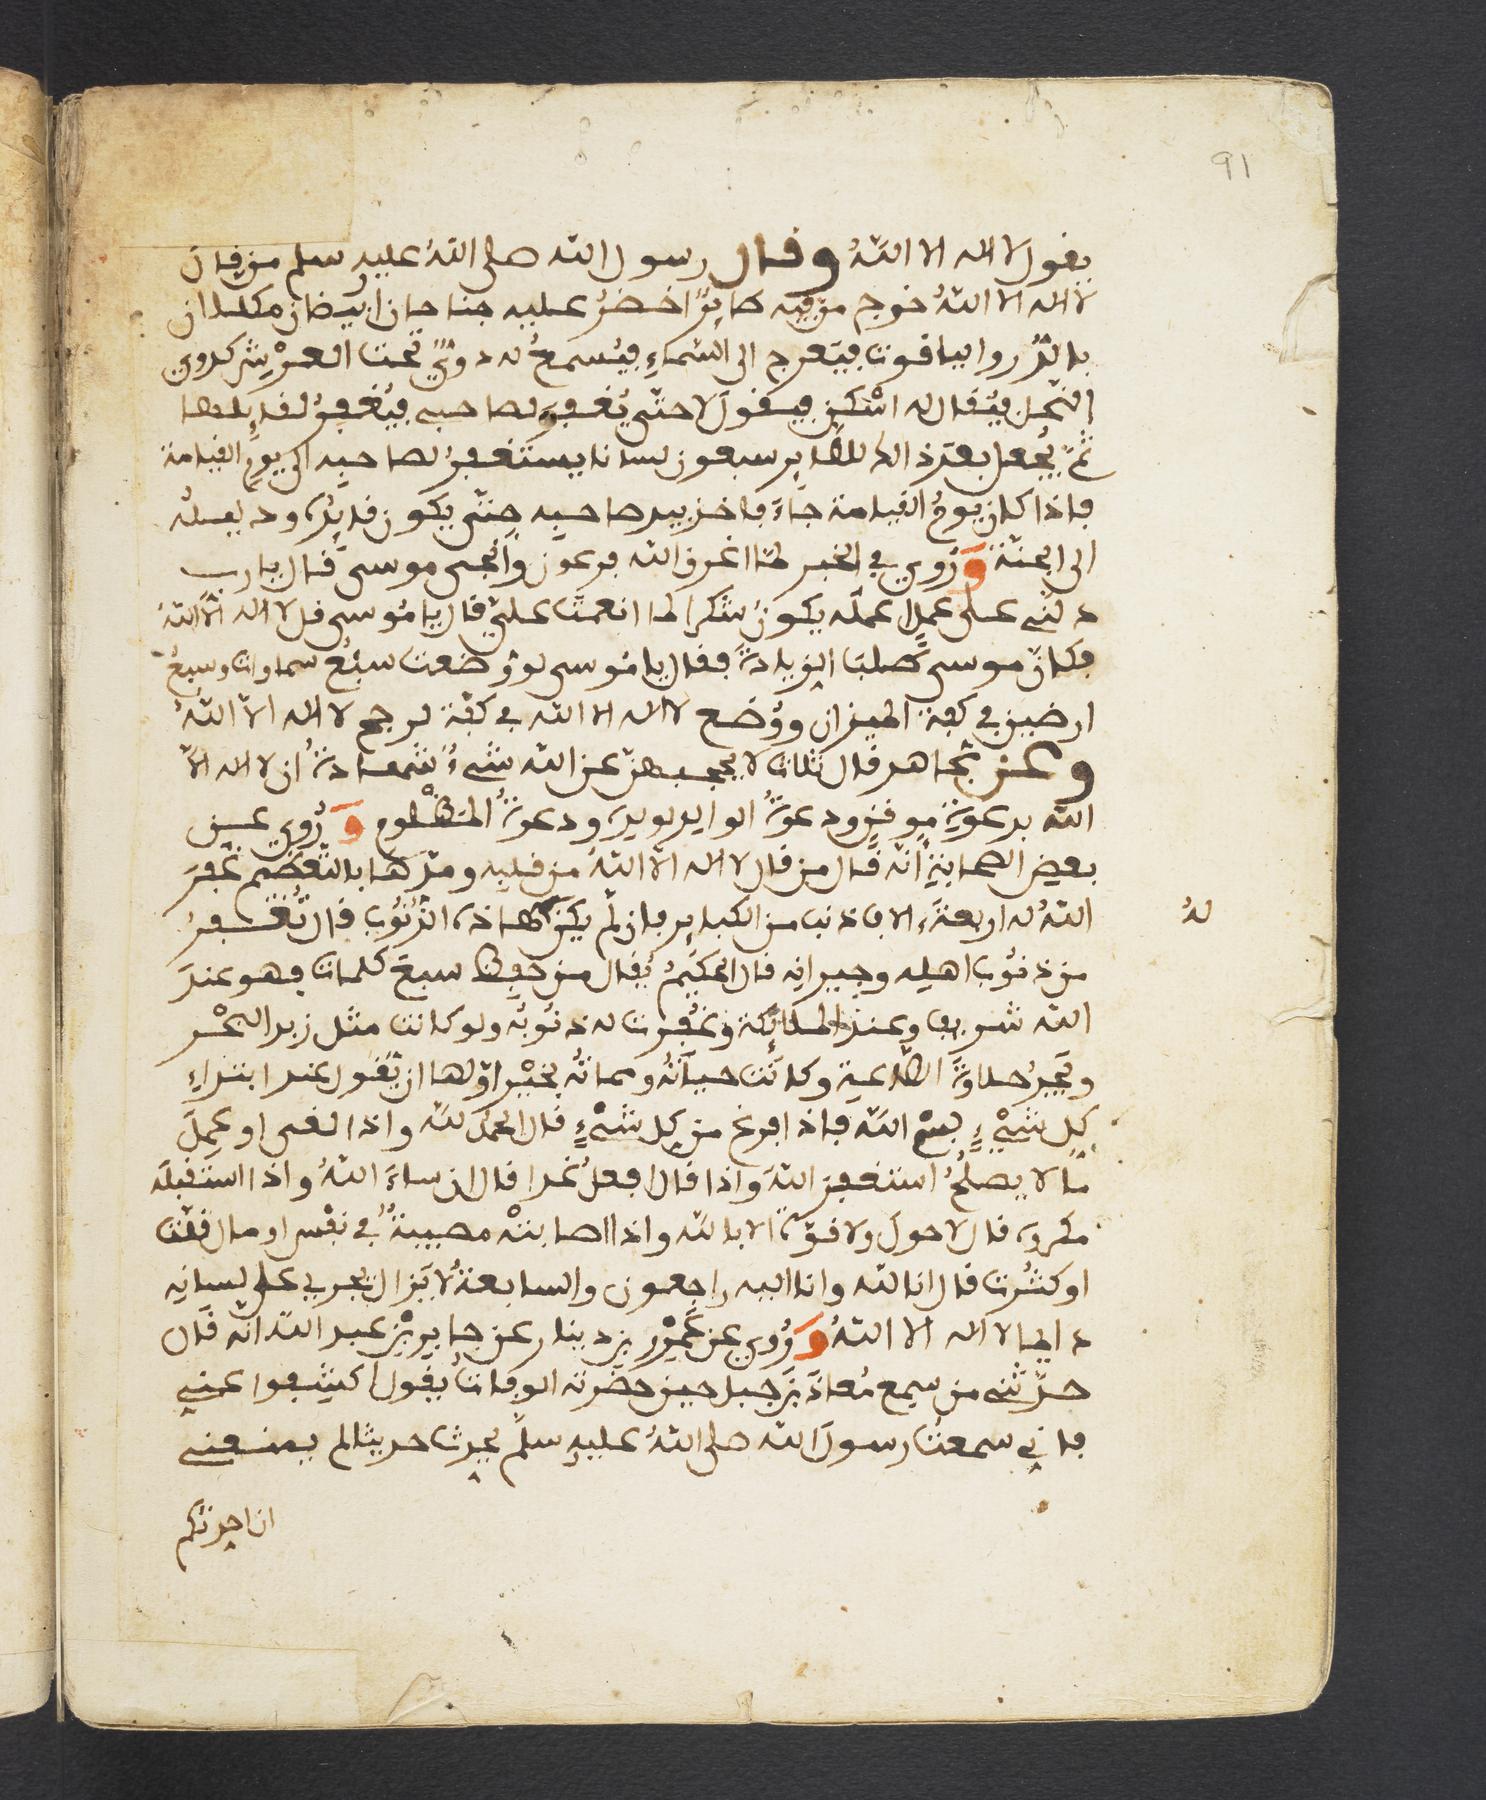 91
يقول لا اله الا اللّهُ وقال رسول اللّه صلى اللّهُ عليه وسلم من قال
لا اله الا اللّهُ خرج من فيه طايرٌ اخضرُ عليه جناحان ابيضان مكللان
بالدُّر والياقوت فيَعرج الى السّماءِ فيُسمعُ له دويٌّ تحت العرْش كدوي
النّحل فيُقال له اسْكن فيقول لا حتّى يُغفرَ لصاحبي فيُغفرُ لقايلها
ثمّ يُجعل بعدَ ذالك للطاير سبعون لسانا يستغفرُ لصاحبِه الى يومِ القيامة
فاذا كان يومُ القيامة جاءَ فاخذ بيد صاحبه حتى يكون قايدُه ودليله
الى الجنّة وَرُوي في الخبر لمّا اغرق اللّه فرعون وأنجى موسى قال يارب
دلني على عملٍ اعمله يكونُ شكرا لما انعمتَ عليّ قال يا مُوسى قل لا اله الاّ اللّهُ
فكانَ موسى طلبَ الزيادةَ فقال يا مُوسى لو وُضعت سبْعُ سماوات وسبعُ
ارضين في كفّة الميزان ووُضع لا اله الا اللّه في كفّة لرجح لا اله الاّ اللّهُ
وعن مجاهد قال ثلاث لا يحجبهنّ عن اللّه شيءٌ شهادةُ ان لا اله الاّ
اللّه بدعوةِ موقنٍ ودعوةُ الوالد لولده ودعوةُ المظْلوم وَرُوي عن
بعضِ الصحابةِ أنّه قال من قال لا اله الاّ اللّهُ من قلبه ومدّها بالتّعظيم غُفرَ
اللّهُ له اربعةَ ءالاف ذنب من الكباير فان لّم يكن لهُ هاذه الذُّنُوب قال تُغفرُ
لهُ
من ذنُوب اهله وجيرانه قال الحكيمُ يُقال من حفِظ سبعَ كلمات فهو عندَ
اللّه شريف وعند الملائكة وغُفرت له ذنُوبُه ولو كانت مثل زبد البحْر
ويجدُ حلاوَةَ الطّاعة وكانَت حياتُه ومماتُه بخيْر اوّلها ان يّقول عند ابتداءِ
كل شيْءٍ بسْم اللّه فاذا فرغ من كل شيْءٍ قال الحمدُ للّه واذا لغى او عمِلَ
ما لا يصلحُ استغفرَ اللّهَ واذا قال افعلُ غدا قال ان شاءَ اللّهُ واذا استقبلَه
مكروه قال لا حول ولا قوّةَ الا باللّه واذا اصابتْه مصيبةٌ في نفْس او مال قلّت
او كثُرت قال انا للّه وانا اليه راجعون والسابعةُ لا يَزال يجري على لسانِه
دايما لا اله الا اللّهُ وَرُوي عن عَمْرو بن دينار عن جابر بْن عبد اللّه انّه قال
حدّثني من سمع مُعاذَ بن جبل حين حضرته الوفاةُ يقول اكشفوا عني
فاني سمعتُ رسولَ اللّه صلى اللّهُ عليه وسلّم يحدث حديثا لم يمنعني
ان احدثكم